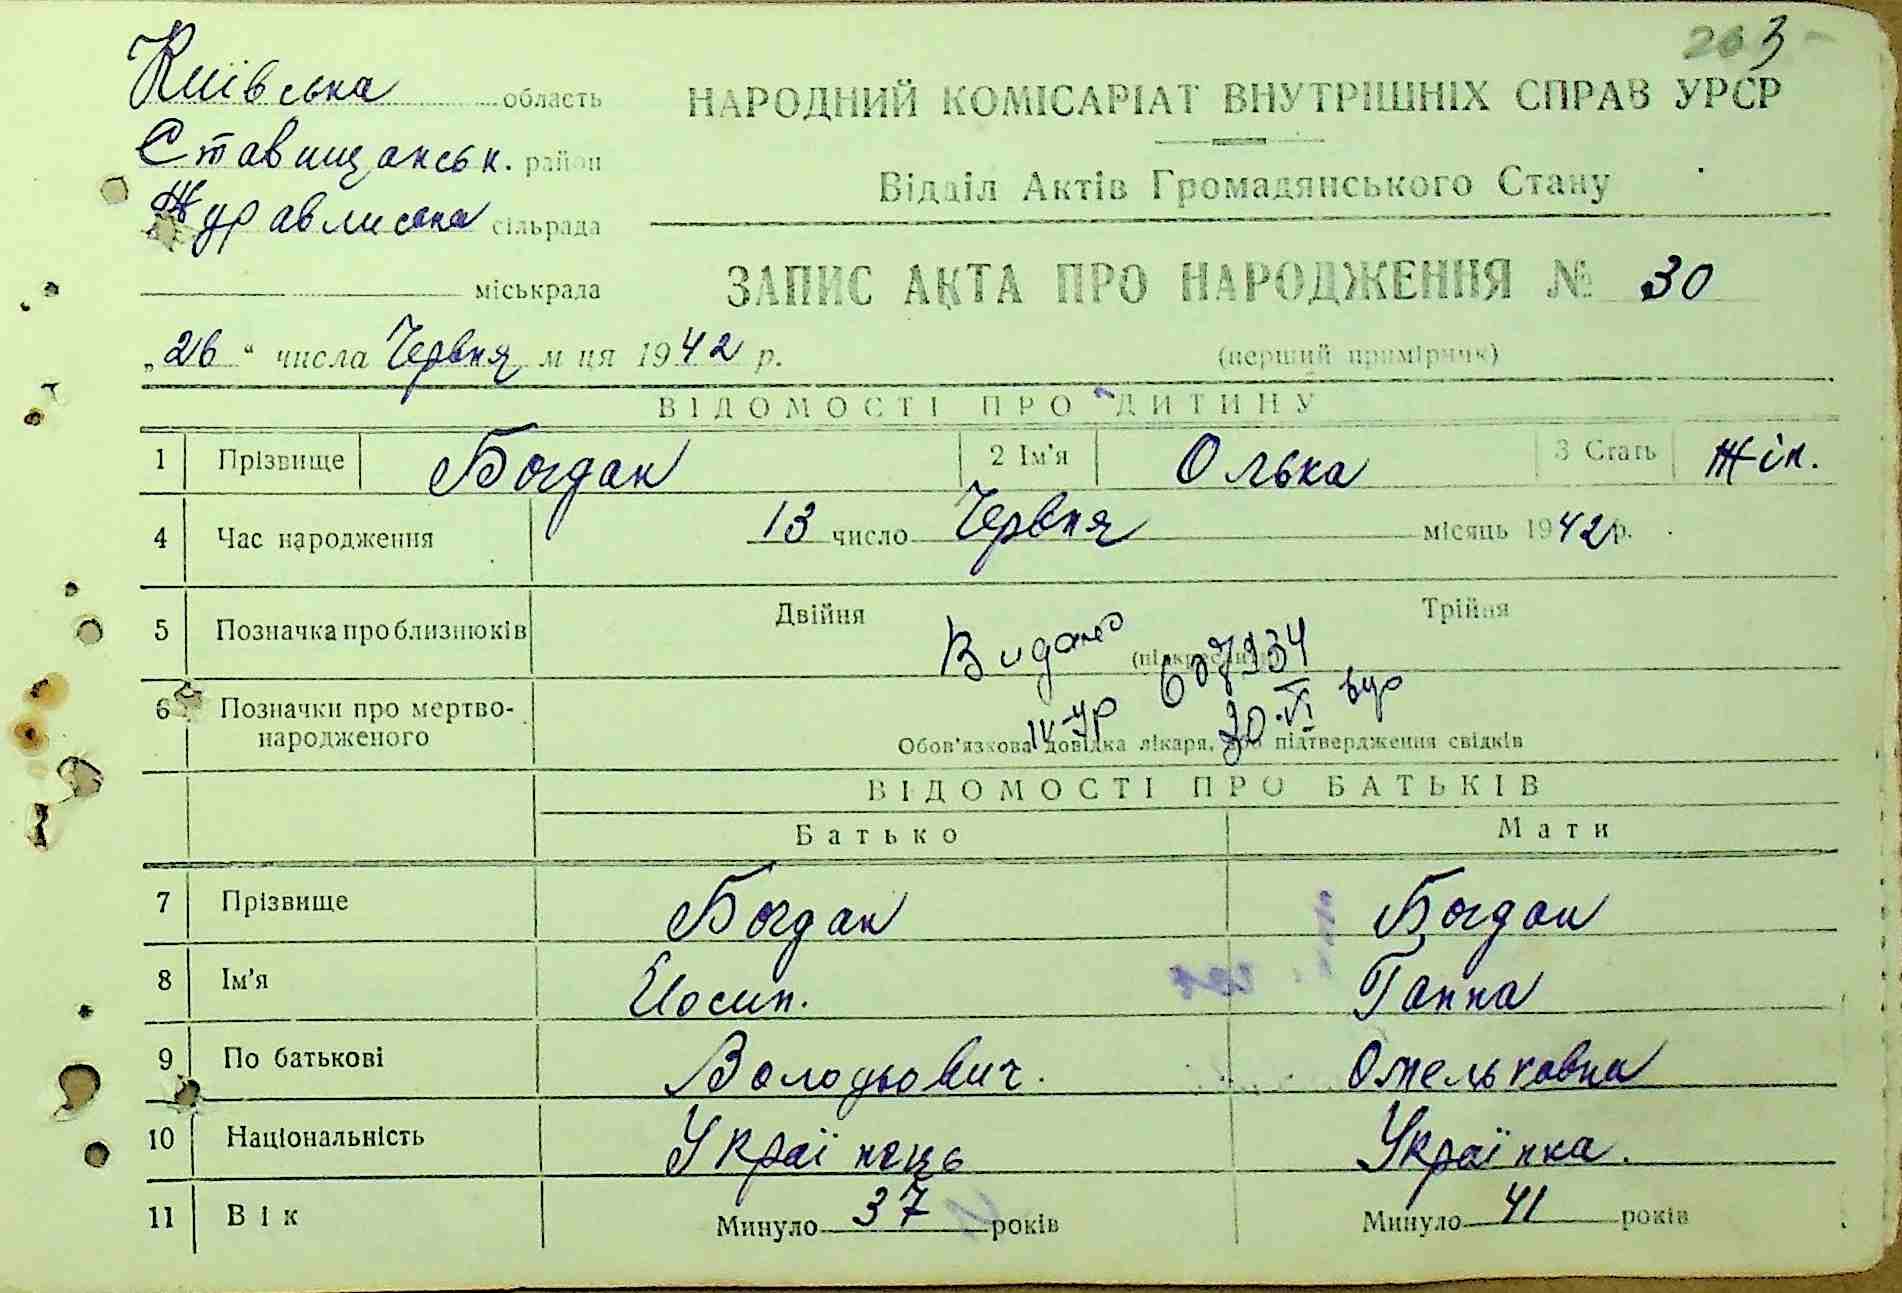 203
Київська область
НАРОДНИЙ КОМІСАРІАТ ВНУТРІШНІХ СПРАВ УРСР
Ставищанськ. район
Відділ Актів Громадянського Стану
Журавлиська сільрада
міськрада
ЗАПИС АКТА ПРО НАРОДЖЕННЯ № 30
„26“ числа Червня м ця 1942 р.
(перший примірник)
ВІДОМОСТІ ПРО ДИТИНУ
1 Прізвище Богдан 2 Ім'я Олька 3 Стать Жін.
4 Час народження 13 число Червня місяць 1942 р.
5 Позначка про близнюків Двійня Трійня
Видано
(підкреслити)
607934
6 Позначки про мертво-
народженого
IV-УР 30.VI
Обов'язкова довідка лікаря, або підтвердження свідків
ВІДОМОСТІ ПРО БАТЬКІВ
Батько Мати
7 Прізвище Богдан Богдан
8 Ім'я Йосип. Ганна
9 По батькові Володьович. Омельковна
10 Національність Українець Українка.
11 Вік Минуло 37 років Минуло 41 років